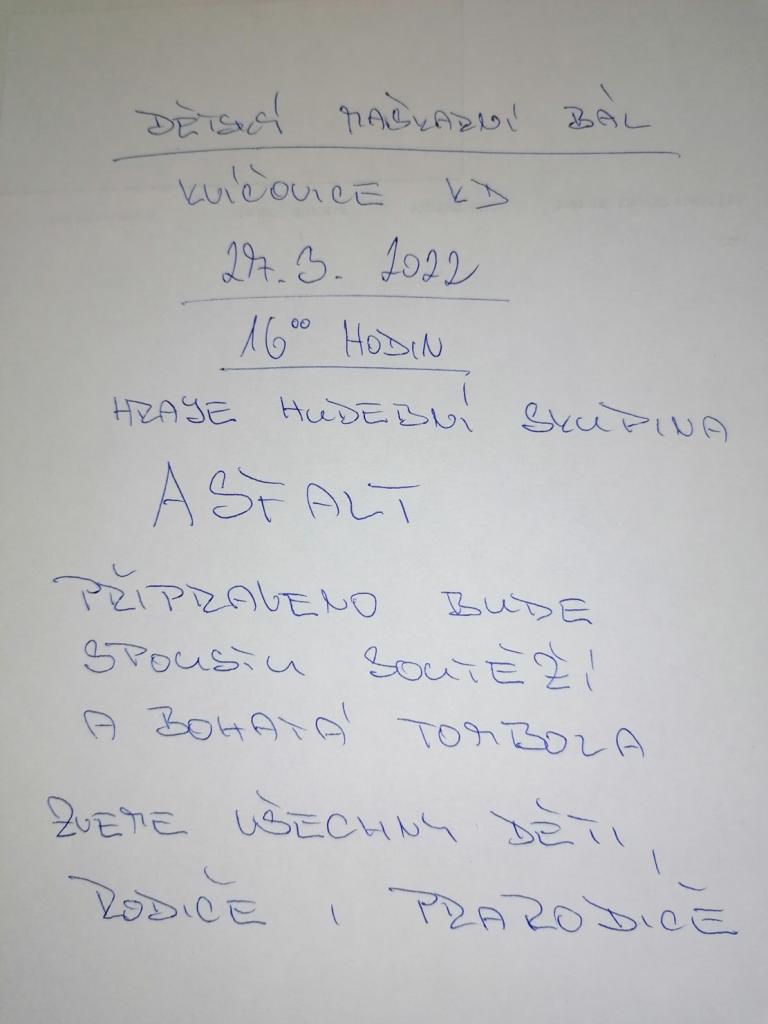 DĚTSKÝ MAŠKARNÍ BÁL
KVÍČOVICE KD
27. 3. 2022
16⁰⁰ HODIN
HRAJE HUDEBNÍ SKUPINA
ASFALT
PŘIPRAVENO BUDE
SPOUSTU SOUTĚŽÍ
A BOHATÁ TOMBOLA
ZVEME VŠECHNY DĚTI,
RODIČE I PRARODIČE